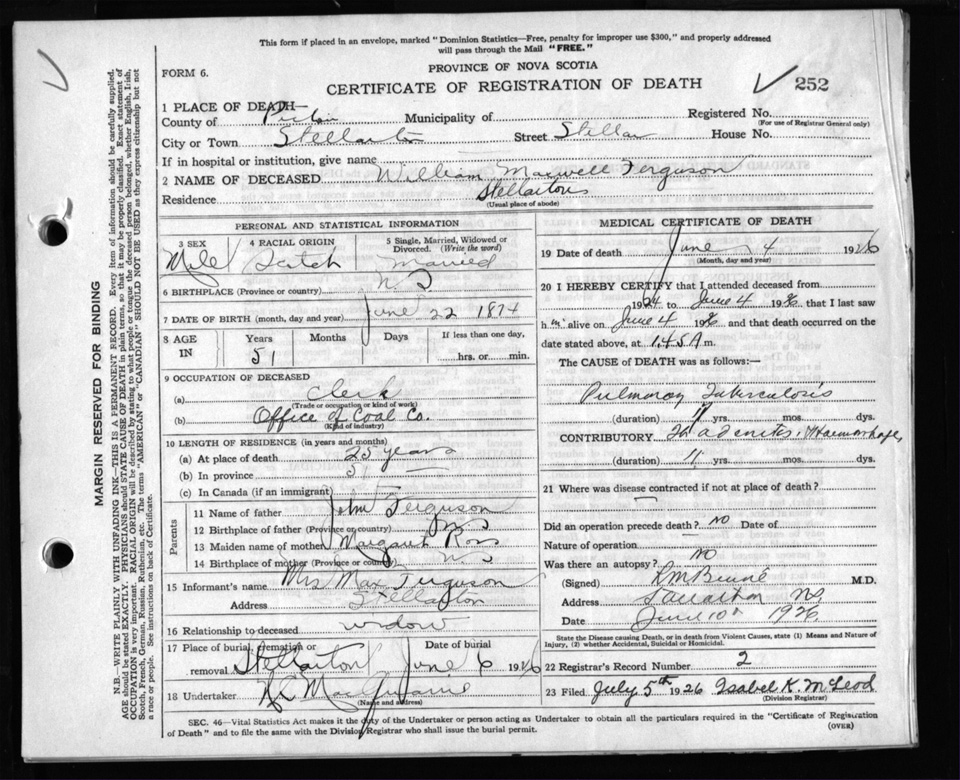 This form if placed in an envelope, marked "Dominion Statistics—Free, penalty for improper use $300," and properly addressed
will pass through the Mail "FREE."
PROVINCE OF NOVA SCOTIA
FORM 6.
CERTIFICATE OF REGISTRATION OF DEATH
252
1 PLACE OF DEATH—
County of Pictou Municipality of Registered No.
(For use of Registrar General only)
City or Town Stellarton Street Stellar House No.
If in hospital or institution, give name
2 NAME OF DECEASED William Maxwell Ferguson
Residence Stellarton
(Usual place of abode)
PERSONAL AND STATISTICAL INFORMATION
3 SEX 4 RACIAL ORIGIN 5 Single, Married, Widowed or Divorced. (Write the word)
Male Scotch Married
6 BIRTHPLACE (Province or country) N.S.
7 DATE OF BIRTH (month, day and year) June 22 1874
8 AGE IN Years Months Days If less than one day,
51 hrs. or min.
9 OCCUPATION OF DECEASED
(a) Clerk
(Trade or occupation or kind of work)
(b) Office of Coal Co.
(Kind of industry)
10 LENGTH OF RESIDENCE (in years and months)
(a) At place of death 25 years
(b) In province 51
(c) In Canada (if an immigrant)
Parents
11 Name of father John Ferguson
12 Birthplace of father (Province or country) N S
13 Maiden name of mother Margaret Ross
14 Birthplace of mother (Province or country) N.S.
15 Informant's name Mrs Max Ferguson
Address Stellarton
16 Relationship to deceased widow
17 Place of burial, cremation or removal Stellarton Date of burial June 6 1926
18 Undertaker
(Name and address)
MEDICAL CERTIFICATE OF DEATH
19 Date of death June 4 1926
(Month, day and year)
20 I HEREBY CERTIFY that I attended deceased from
1924 to June 4 1926 that I last saw
him alive on June 4 1926 and that death occurred on the
date stated above, at 1.45 A m.
The CAUSE of DEATH was as follows:—
Pulmonary Tuberculosis
(duration) yrs. mos. dys.
CONTRIBUTORY Tb adenitis, Haemorrhages
(duration) yrs. mos. dys.
21 Where was disease contracted if not at place of death?
Did an operation precede death? NO Date of
Nature of operation
Was there an autopsy? NO
(Signed) M.D.
Address Stellarton NS
Date June 10 1926
State the Disease causing Death, or in death from Violent Causes, state (1) Means and Nature of
Injury, (2) whether Accidental, Suicidal or Homicidal.
22 Registrar's Record Number 2
23 Filed July 5th 1926 Isabel K. McLeod
(Division Registrar)
SEC. 46—Vital Statistics Act makes it the duty of the Undertaker or person acting as Undertaker to obtain all the particulars required in the "Certificate of Registration
of Death" and to file the same with the Division Registrar who shall issue the burial permit.
(OVER)
MARGIN RESERVED FOR BINDING
N.B.—WRITE PLAINLY WITH UNFADING INK—THIS IS A PERMANENT RECORD. Every item of information should be carefully supplied.
AGE should be stated EXACTLY. PHYSICIANS should STATE CAUSE OF DEATH in plain terms, so that it may be properly classified. Exact statement of
OCCUPATION is very important. RACIAL ORIGIN will be described by stating to what people or tongue the deceased person belonged, whether English, Irish,
Scotch, French, German, Russian, Ruthenian, etc. The terms "AMERICAN" or "CANADIAN" SHOULD NOT BE USED as they express citizenship but not
a race or people. See instructions on back of Certificate.